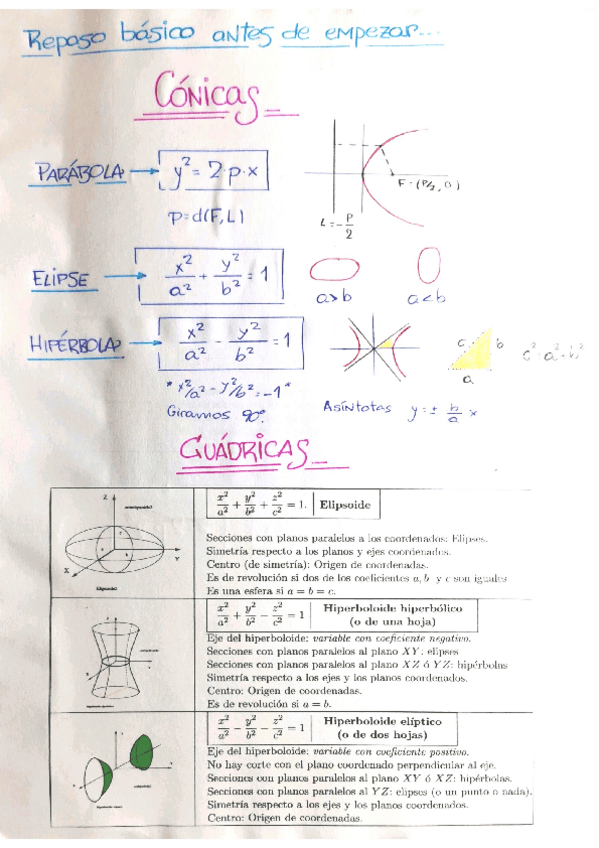 Repaso básico antes de empezar...
CÓNICAS
PARÁBOLA → y² = 2·p·x
p = d(F, L)
F = (P/2, 0)
L = -P/2
ELIPSE → x²/a² + y²/b² = 1
a > b
a < b
HIPÉRBOLA → x²/a² - y²/b² = 1
c b
a
c² = a² + b²
* x²/a² - y²/b² = -1 *
Giramos 90º.
Asíntotas y = ± b/a x
CUÁDRICAS
Z
X
Y
x²/a² + y²/b² + z²/c² = 1. Elipsoide
Secciones con planos paralelos a los coordenados: Elipses.
Simetría respecto a los planos y ejes coordenados.
Centro (de simetría): Origen de coordenadas.
Es de revolución si dos de los coeficientes a, b y c son iguales
Es una esfera si a = b = c.
x²/a² + y²/b² - z²/c² = 1 Hiperboloide hiperbólico
(o de una hoja)
Eje del hiperboloide: variable con coeficiente negativo.
Secciones con planos paralelos al plano XY: elipses
Secciones con planos paralelos al plano XZ ó YZ: hipérbolas
Simetría respecto a los ejes y los planos coordenados.
Centro: Origen de coordenadas.
Es de revolución si a = b.
x²/a² - y²/b² - z²/c² = 1 Hiperboloide elíptico
(o de dos hojas)
Eje del hiperboloide: variable con coeficiente positivo.
No hay corte con el plano coordenado perpendicular al eje.
Secciones con planos paralelos al plano XY ó XZ: hipérbolas.
Secciones con planos paralelos al YZ: elipses (o un punto o nada).
Simetría respecto a los ejes y los planos coordenados.
Centro: Origen de coordenadas.